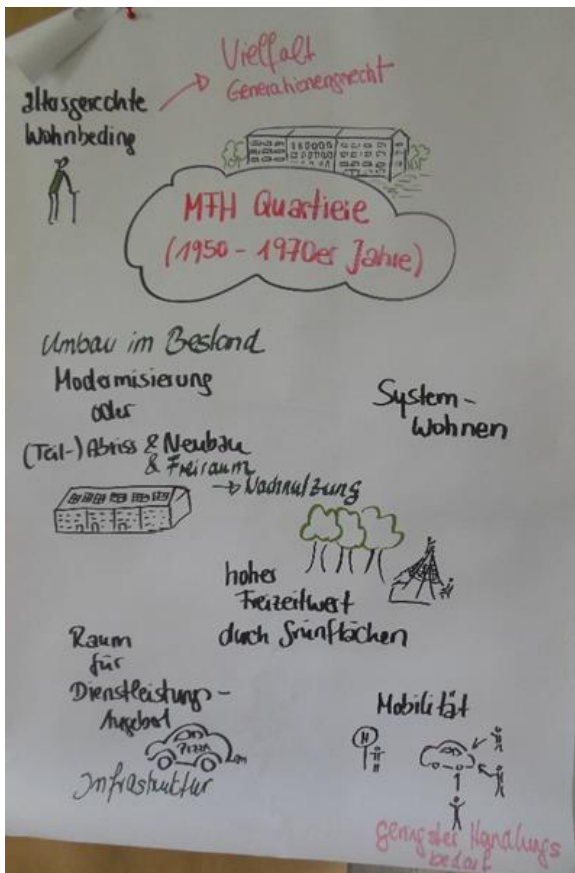 Vielfalt
Generationengerecht
altersgerechte
Wohnbeding
MFH Quartiere
(1950 - 1970er Jahre)
Umbau im Bestand
Modernisierung
oder
(Teil-) Abriss & Neubau
& Freiraum
→ Nachnutzung
System-
Wohnen
hoher
Freizeitwert
durch Grünflächen
Raum
für
Dienstleistungs-
Angebot
PIZZA
Infrastruktur
Mobilität
H
geringster Handlungs
bedarf